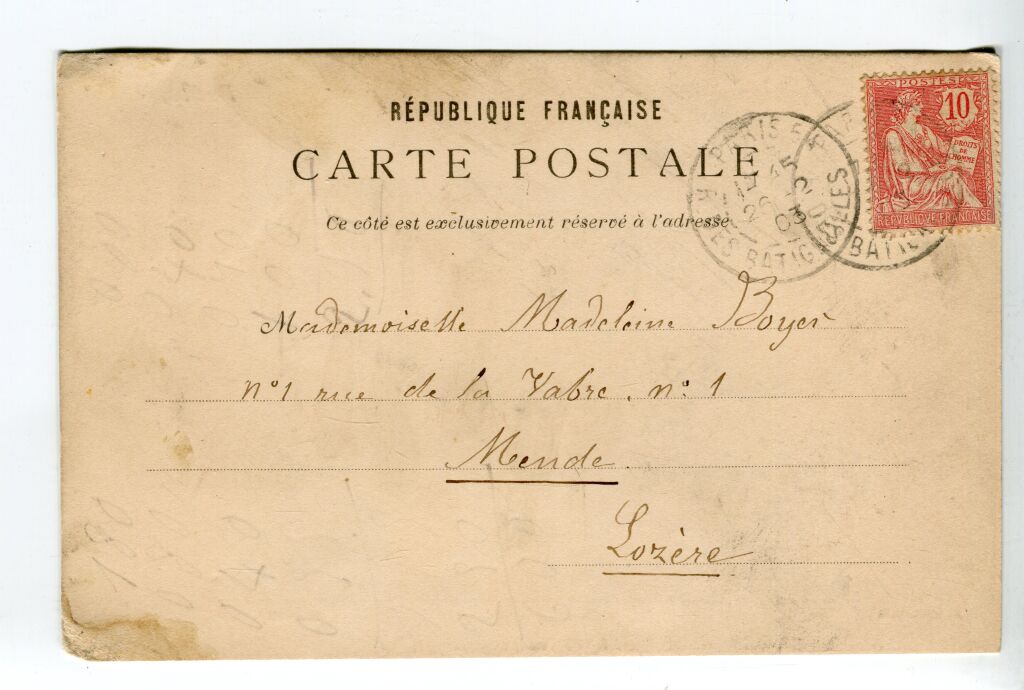 RÉPUBLIQUE FRANÇAISE
CARTE POSTALE
Ce côté est exclusivement réservé à l'adresse
POSTES
10
DROITS DE L'HOMME
REPVBLIQVE FRANÇAISE
PARIS
BATIG
BATIG
Mademoiselle Madeleine Boyer
n°1 rue de la Vabre. n°1
Mende.
Lozère